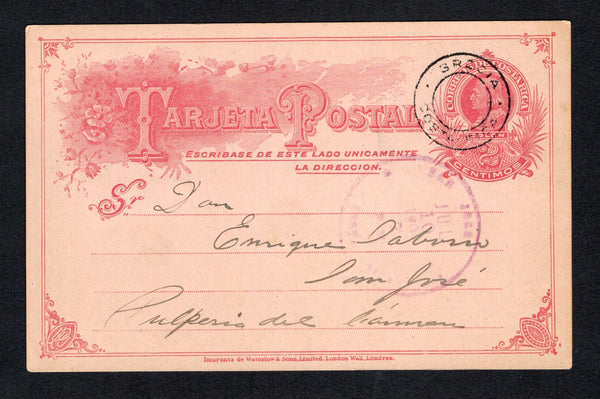 GRECIA
CORREOS DE COSTA RICA
TARJETA POSTAL
2
CENTIMOS
ESCRIBASE DE ESTE LADO UNICAMENTE
LA DIRECCION.
JUL
Sr Don
Enrique
San José
Pulperia del Cármen
Imprenta de Waterlow & Sons, Limited, London Wall, Londres.